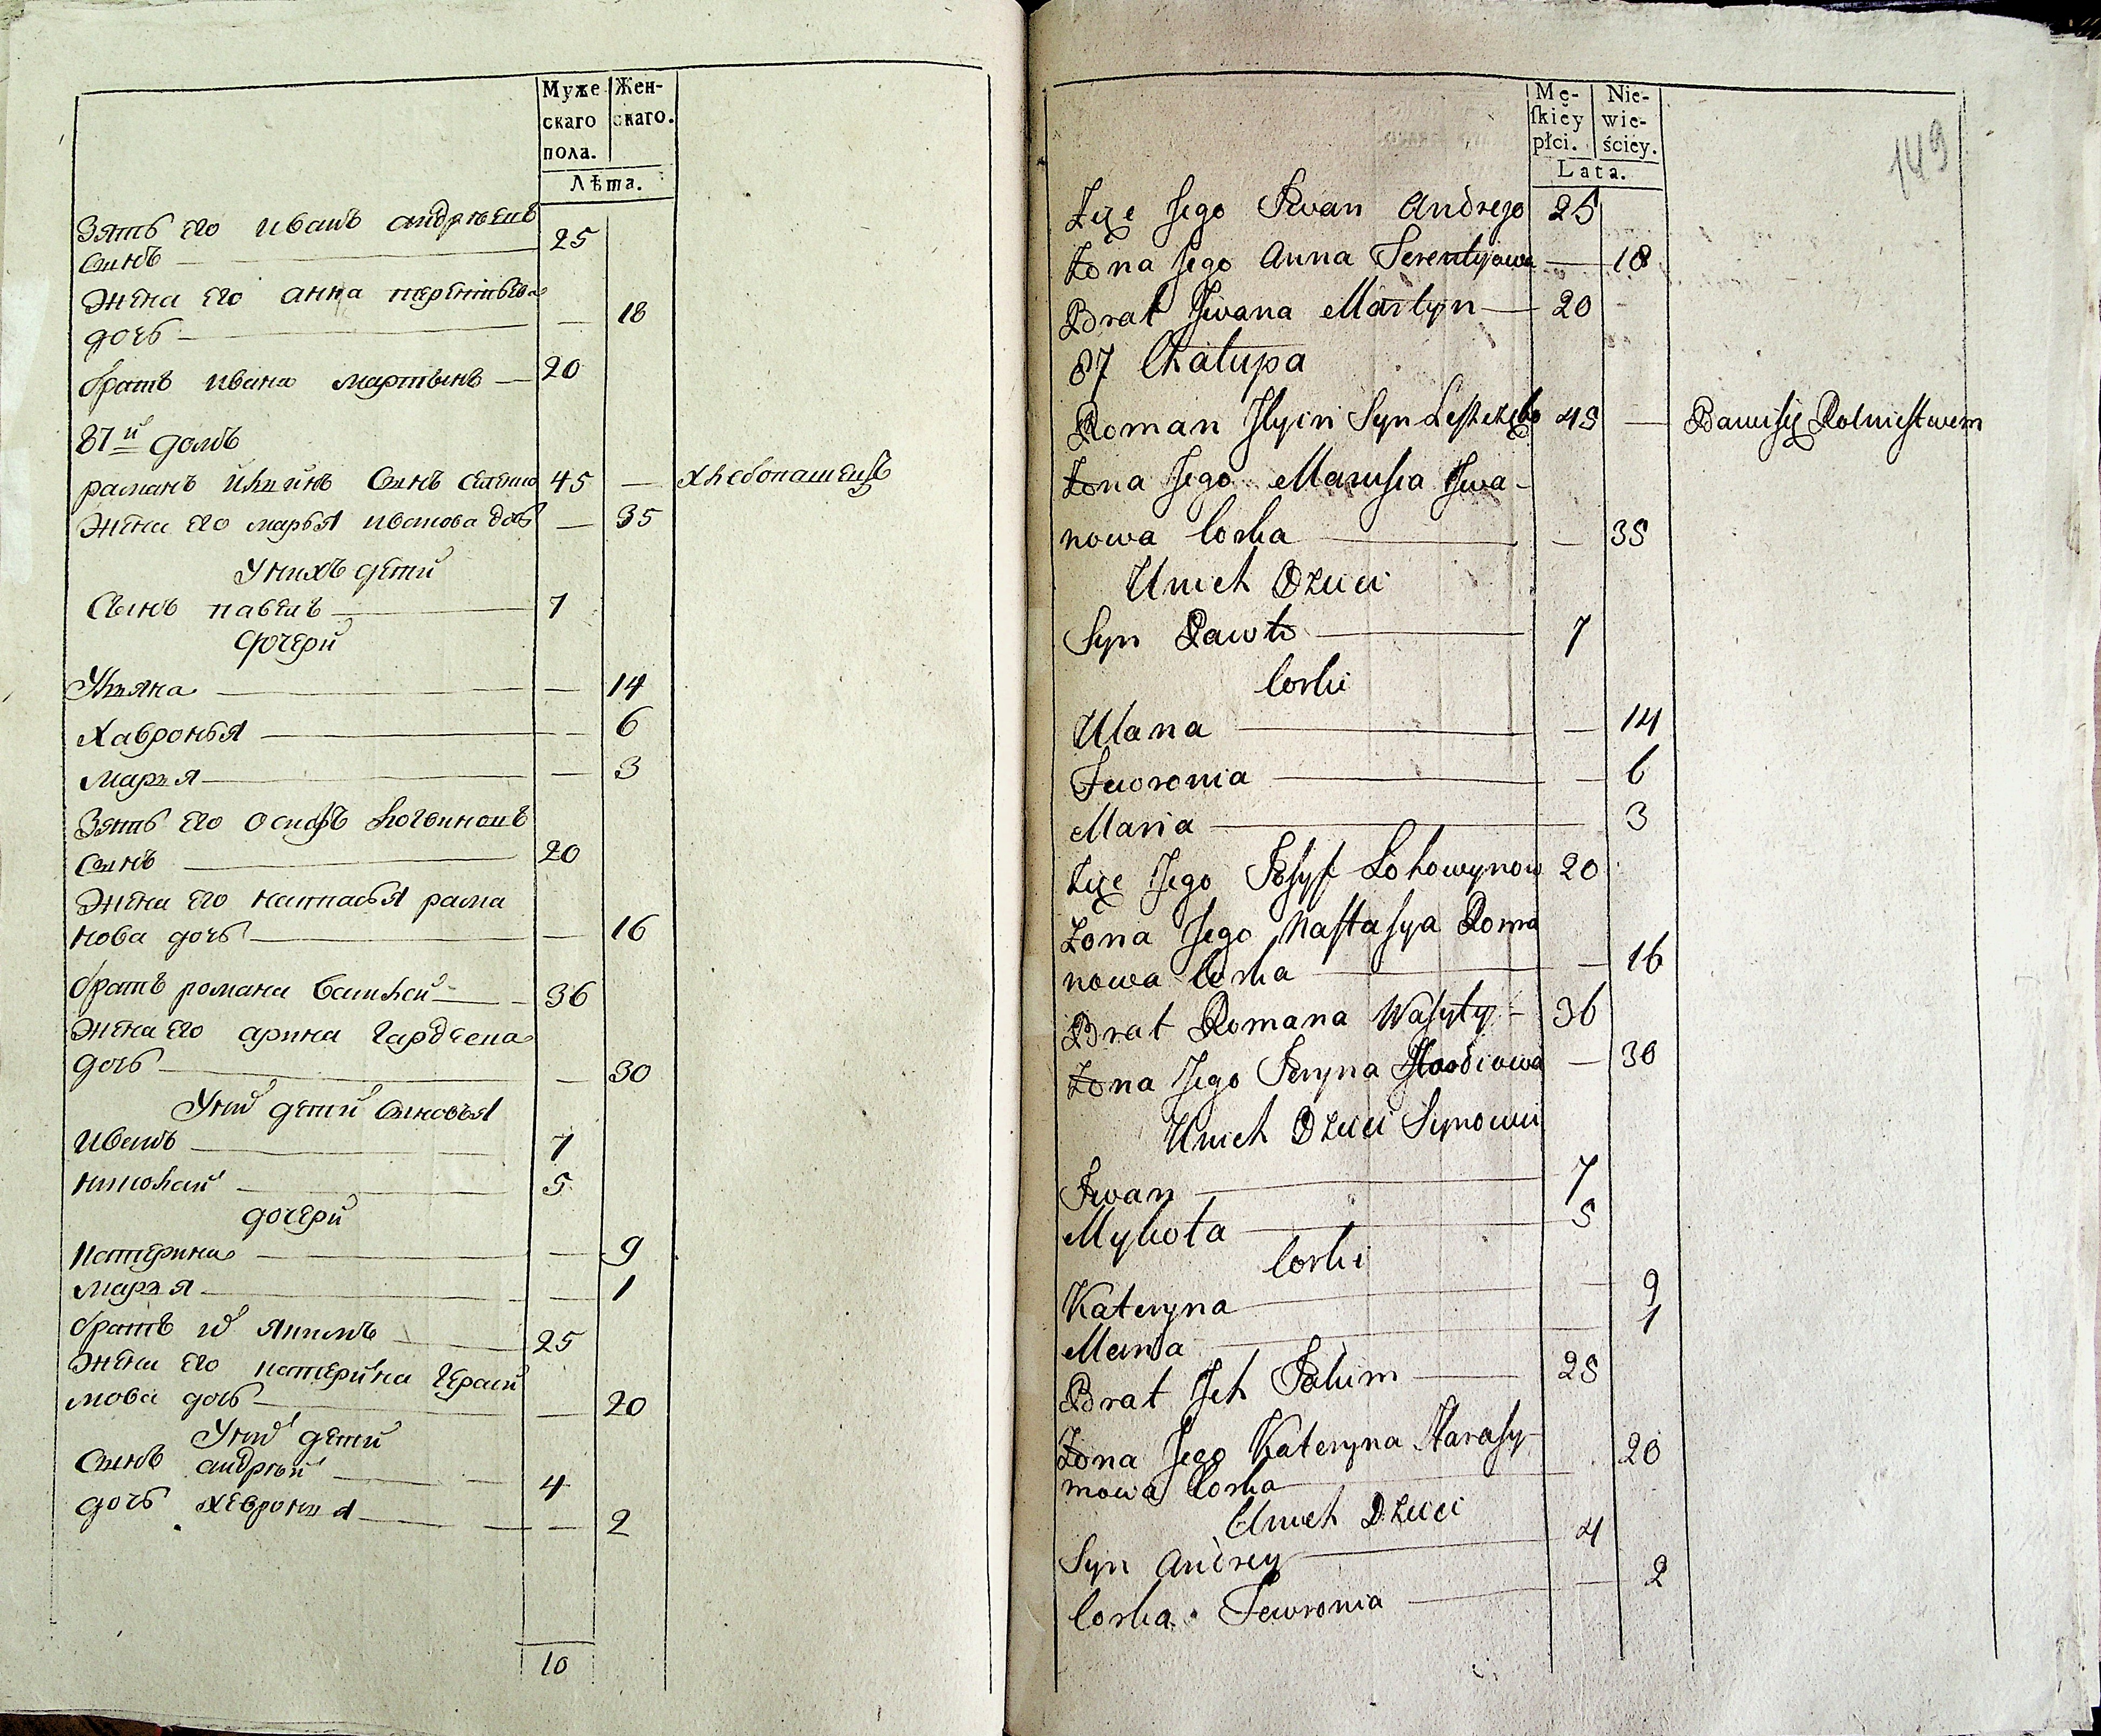 Муже
скаго
пола.
Жен-
скаго.
Лѣта.
Зять его иванъ андрѣевъ
сынъ 25
жена его анна терентьева
дочь — 18
братъ ивана мартынъ — 20
87й домъ
романъ ильинъ сынъ 45 — хлебопашецъ
жена его марья иванова дочь — 35
У нихъ дети
Сынъ павелъ 7
дочери
Ульяна — 14
Хавронья — 6
марья — 3
Зять его осифъ логвиновъ
сынъ 20
жена его настасья рома
нова дочь — 16
братъ романа василей — 36
жена его арина гордеева
дочь — 30
У них дети сыновья
иванъ 7
николай 5
дочери
катерина — 9
марья — 1
братъ их якимъ 25
жена его катерина гераси
мова дочь — 20
У них дети
Сынъ андрей 4
дочь хевронья — 2
10
Mę-
ſkiey
płci.
Nie-
wie-
ściey.
Lata.
149
Zięć Jego Iwan Andrejo 25
Żona Jego Anna Terentyjowa — 18
Brat Iwana Martyn — 20
87 Chałupa
Roman Ilyin Syn 45 — Bawi się Rolnictwem
Żona Jego Marusia Iwa-
nowa Corka — 35
U nich Dzieci
Syn Pawło 7
Corki
Ulana — 14
Fewronia — 6
Maria 3
Zięć Jego Josyf Lohowynow 20
Żona Jego Nastasya Roma
nowa Corka — 16
Brat Romana Wasyly — 36
Żona Jego Jeryna Hordiowa — 30
U nich Dzieci Synowie
Iwan 7
Mykoła 5
Corki
Kateryna — 9
Maria 1
Brat Jch Jakim 25
Żona Jego Kateryna Harasy-
mowa Corka 20
U nich Dzieci
Syn Andrey 4
Corka Fewronia — 2